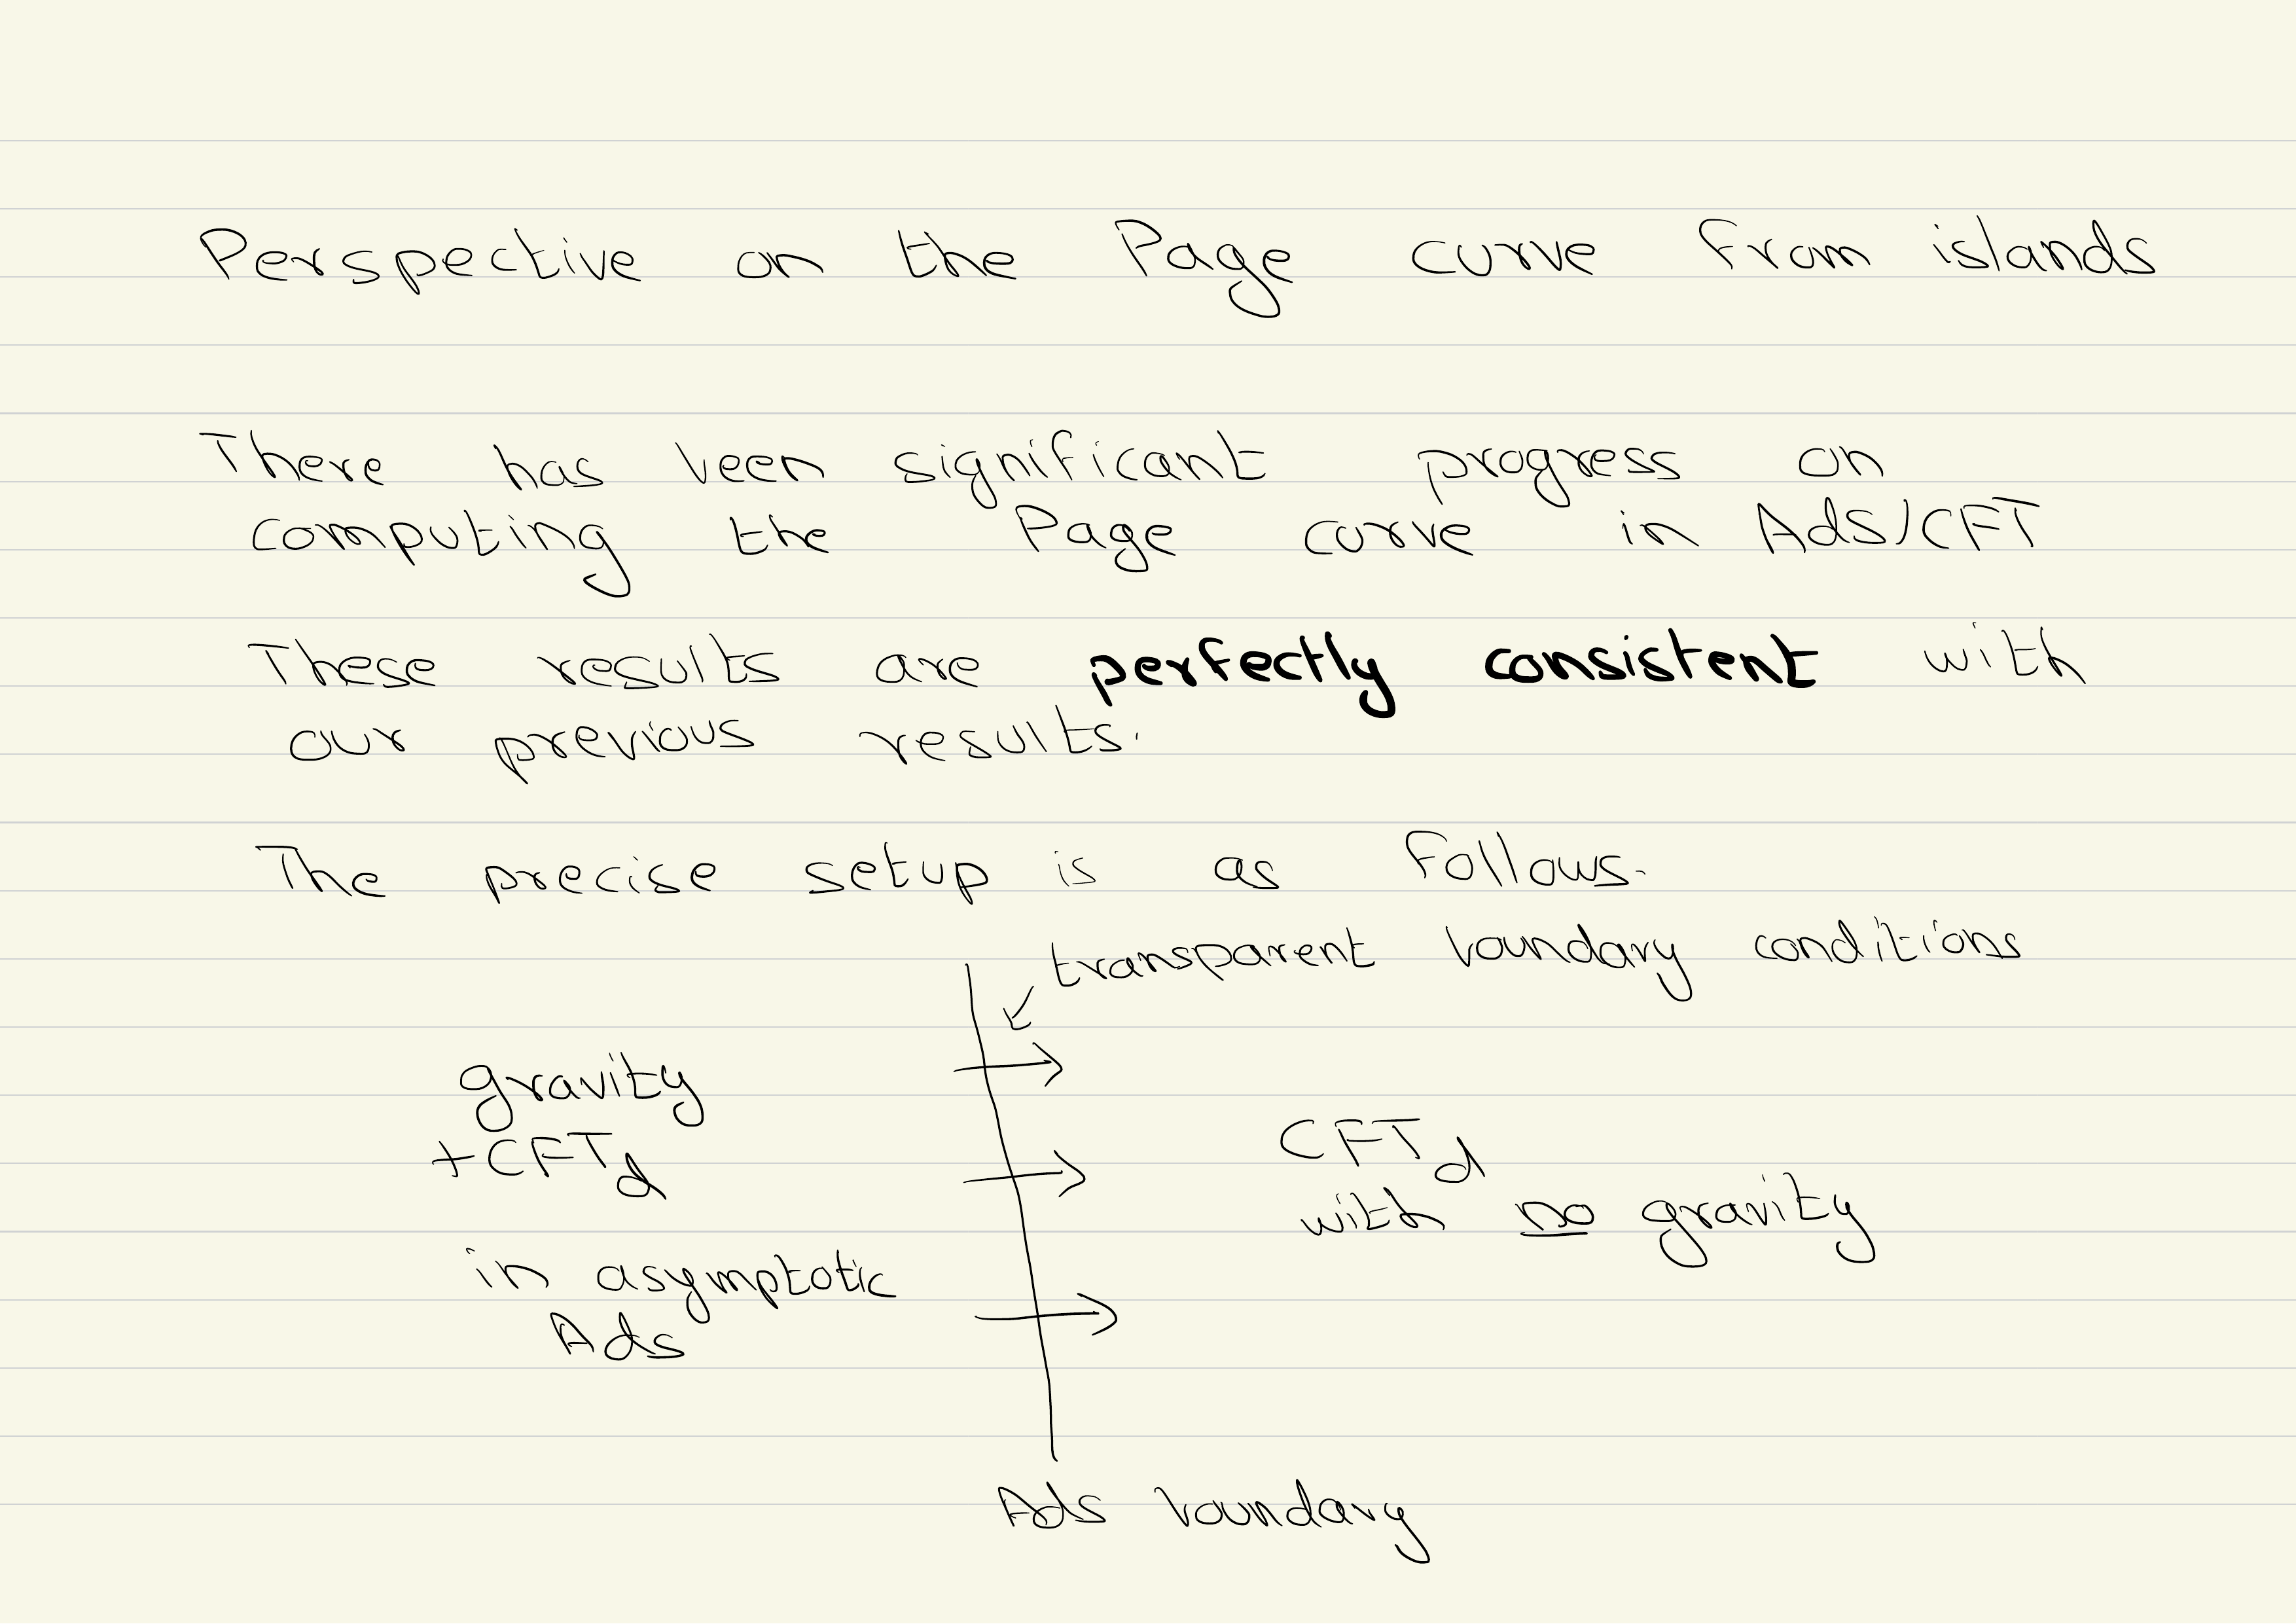 Perspective on the Page curve from islands
There has been significant progress on
computing the Page curve in AdS/CFT
These results are perfectly consistent with
our previous results.
The precise setup is as follows.
transparent boundary conditions
gravity
+CFT_d
in asymptotic
AdS
CFT_d
with no gravity
AdS boundary